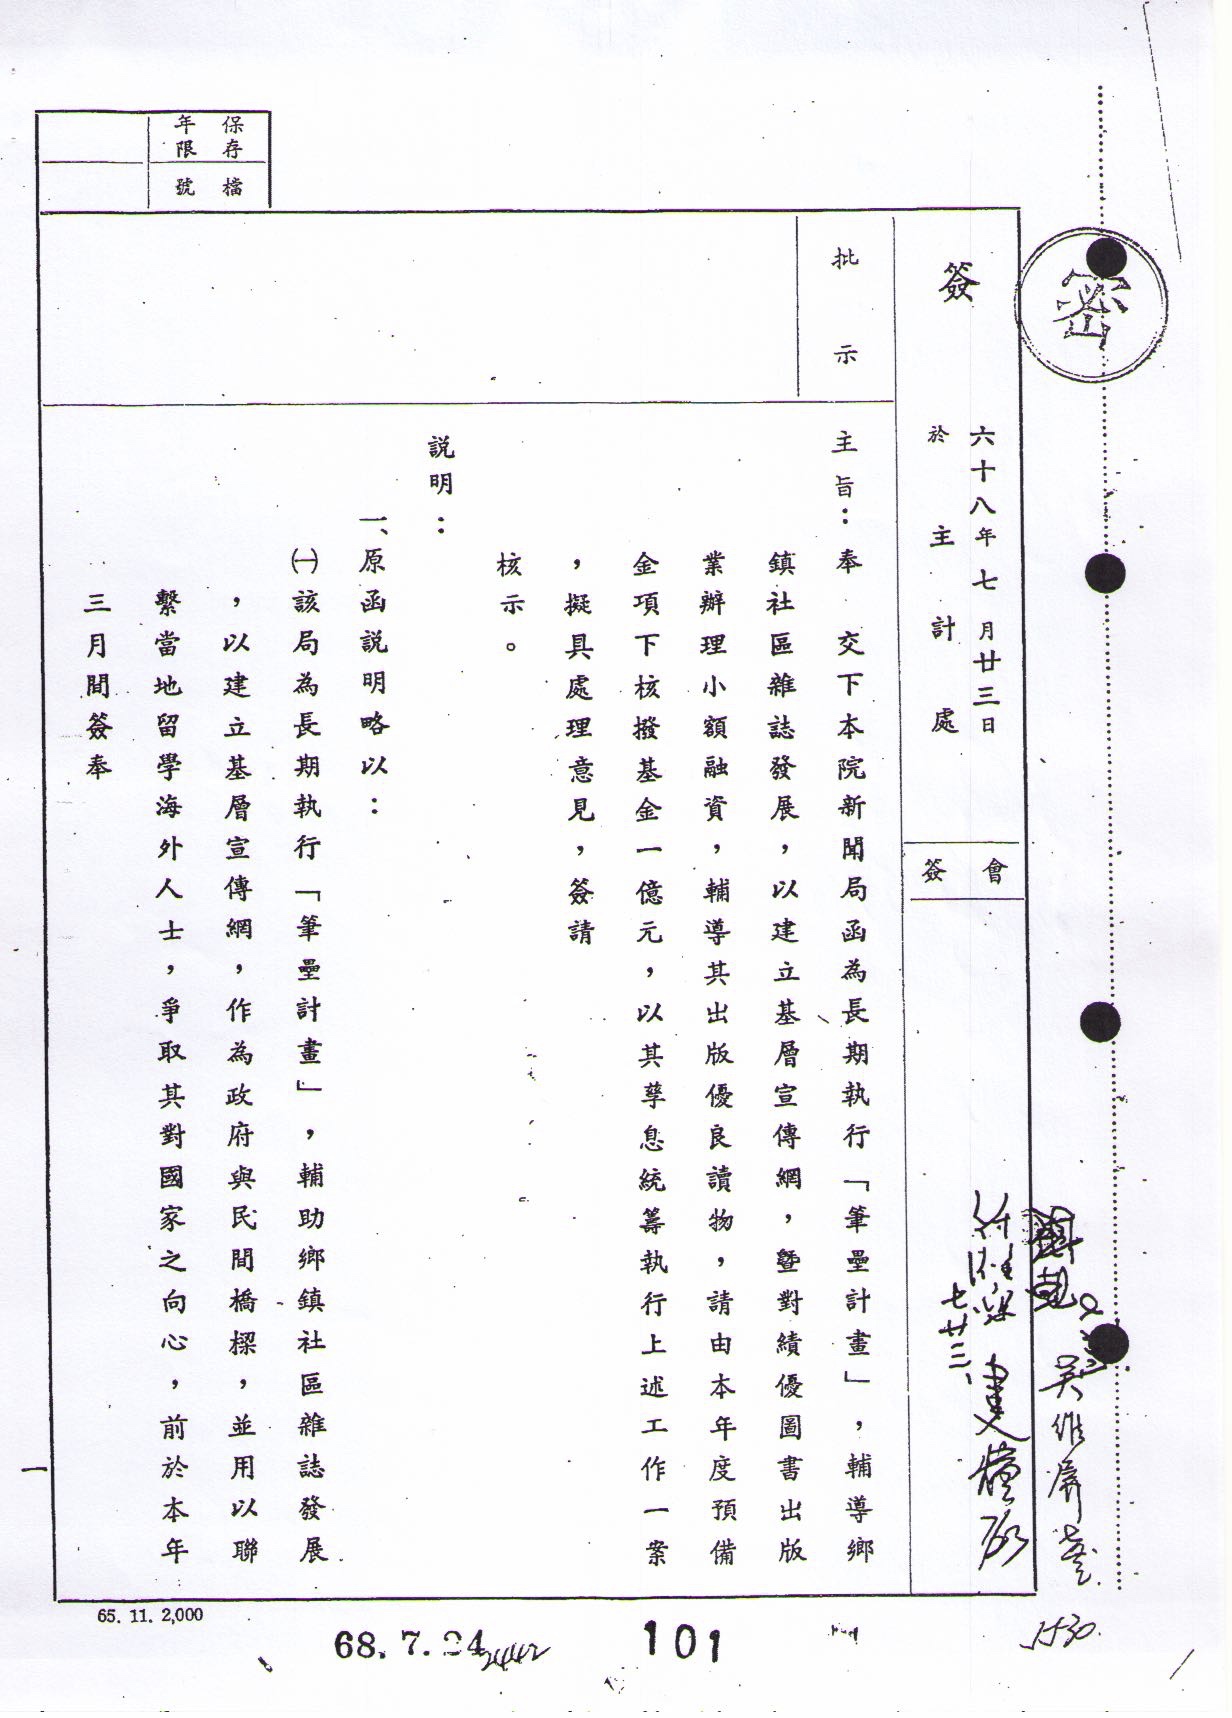 密
保存年限
檔號
簽
六十八年七月廿三日
於主計處
會簽
批示
主旨：奉　交下本院新聞局函為長期執行「筆壘計畫」，輔導鄉
鎮社區雜誌發展，以建立基層宣傳網，暨對績優圖書出版
業辦理小額融資，輔導其出版優良讀物，請由本年度預備
金項下核撥基金一億元，以其孳息統籌執行上述工作一案
，擬具處理意見，簽請
核示。
說明：
一、原函說明略以：
㈠該局為長期執行「筆壘計畫」，輔助鄉鎮社區雜誌發展
，以建立基層宣傳網，作為政府與民間橋樑，並用以聯
繫當地留學海外人士，爭取其對國家之向心，前於本年
三月間簽奉
七廿三、
吳維屏
一
65. 11. 2,000
68. 7. 24
2442
101
1530.